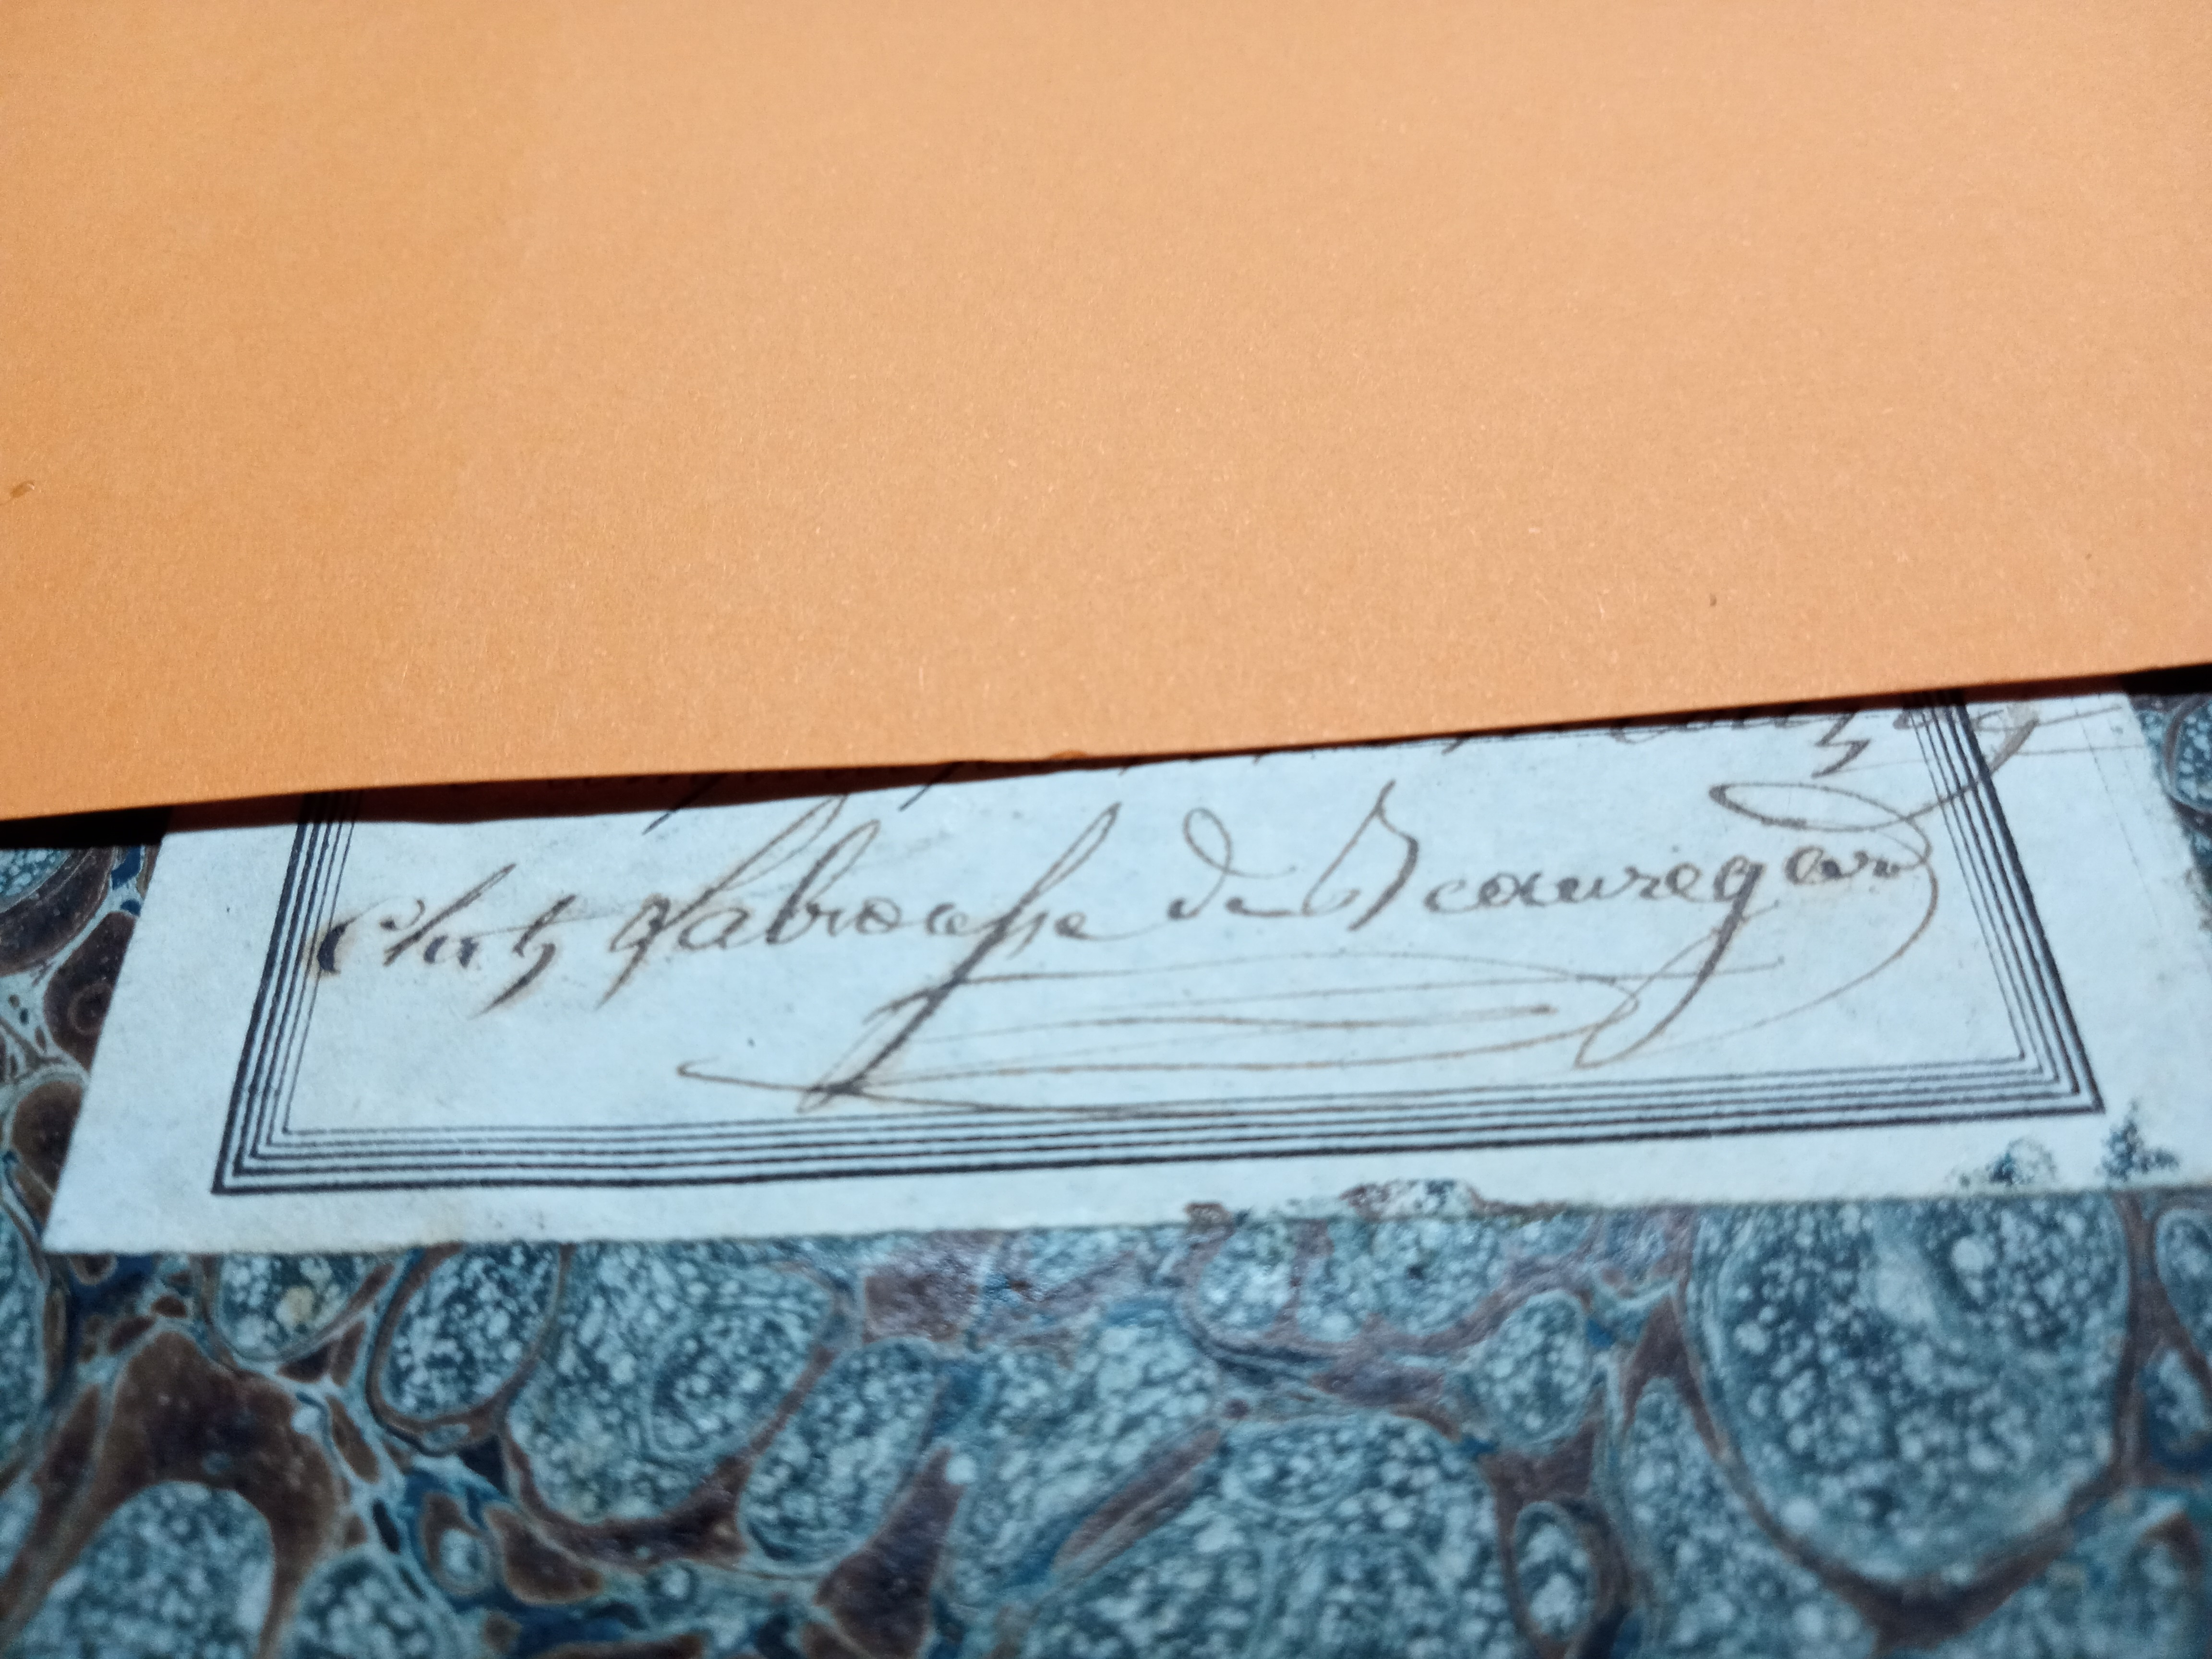 Chez Labrousse de Beauregard